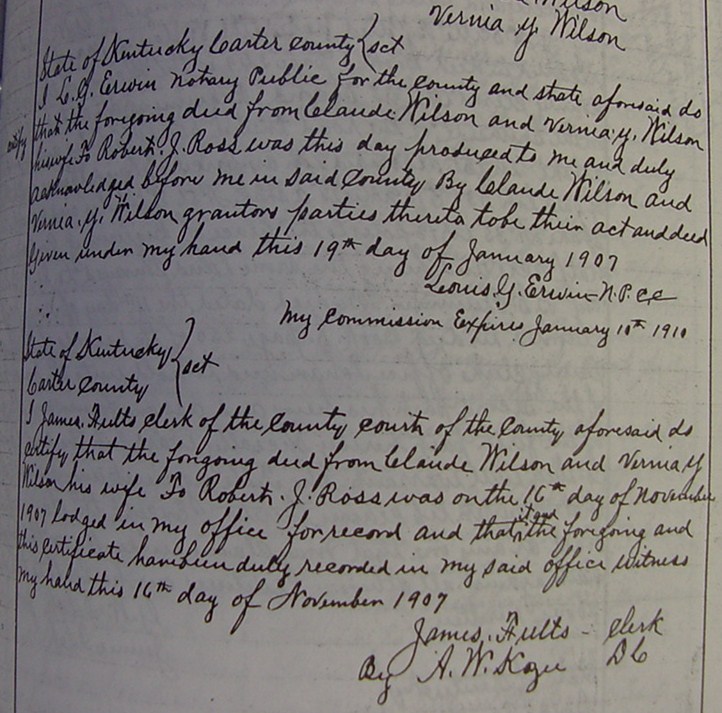 Wilson
Vernia Y Wilson
State of Kentucky Carter County } sct
I L. G. Erwin Notary Public for the county and state aforesaid do
certify that the forgoing deed from Claude Wilson and Vernia, Y. Wilson
his wife To Robert. J. Ross was this day produced to me and duly
acknowledged before me in said County By Claude Wilson and
Vernia, Y. Wilson grantors parties thereto to be their act and deed
Given under my hand this 19th day of January 1907
Louis. G. Erwin - N. P. C C
My Commission Expires January 10th 1910
State of Kentucky } sct
Carter County
I James, Fults clerk of the County court of the County aforesaid do
certify that the forgoing deed from Claude Wilson and Vernia Y
Wilson his wife To Robert. J. Ross was on the 16th day of November
1907 lodged in my office for record and that it and the forgoing and
this certificate have been duly recorded in my said office witness
my hand this 16th day of November 1907
James. Fults - Clerk
By A. W. Kozee D C